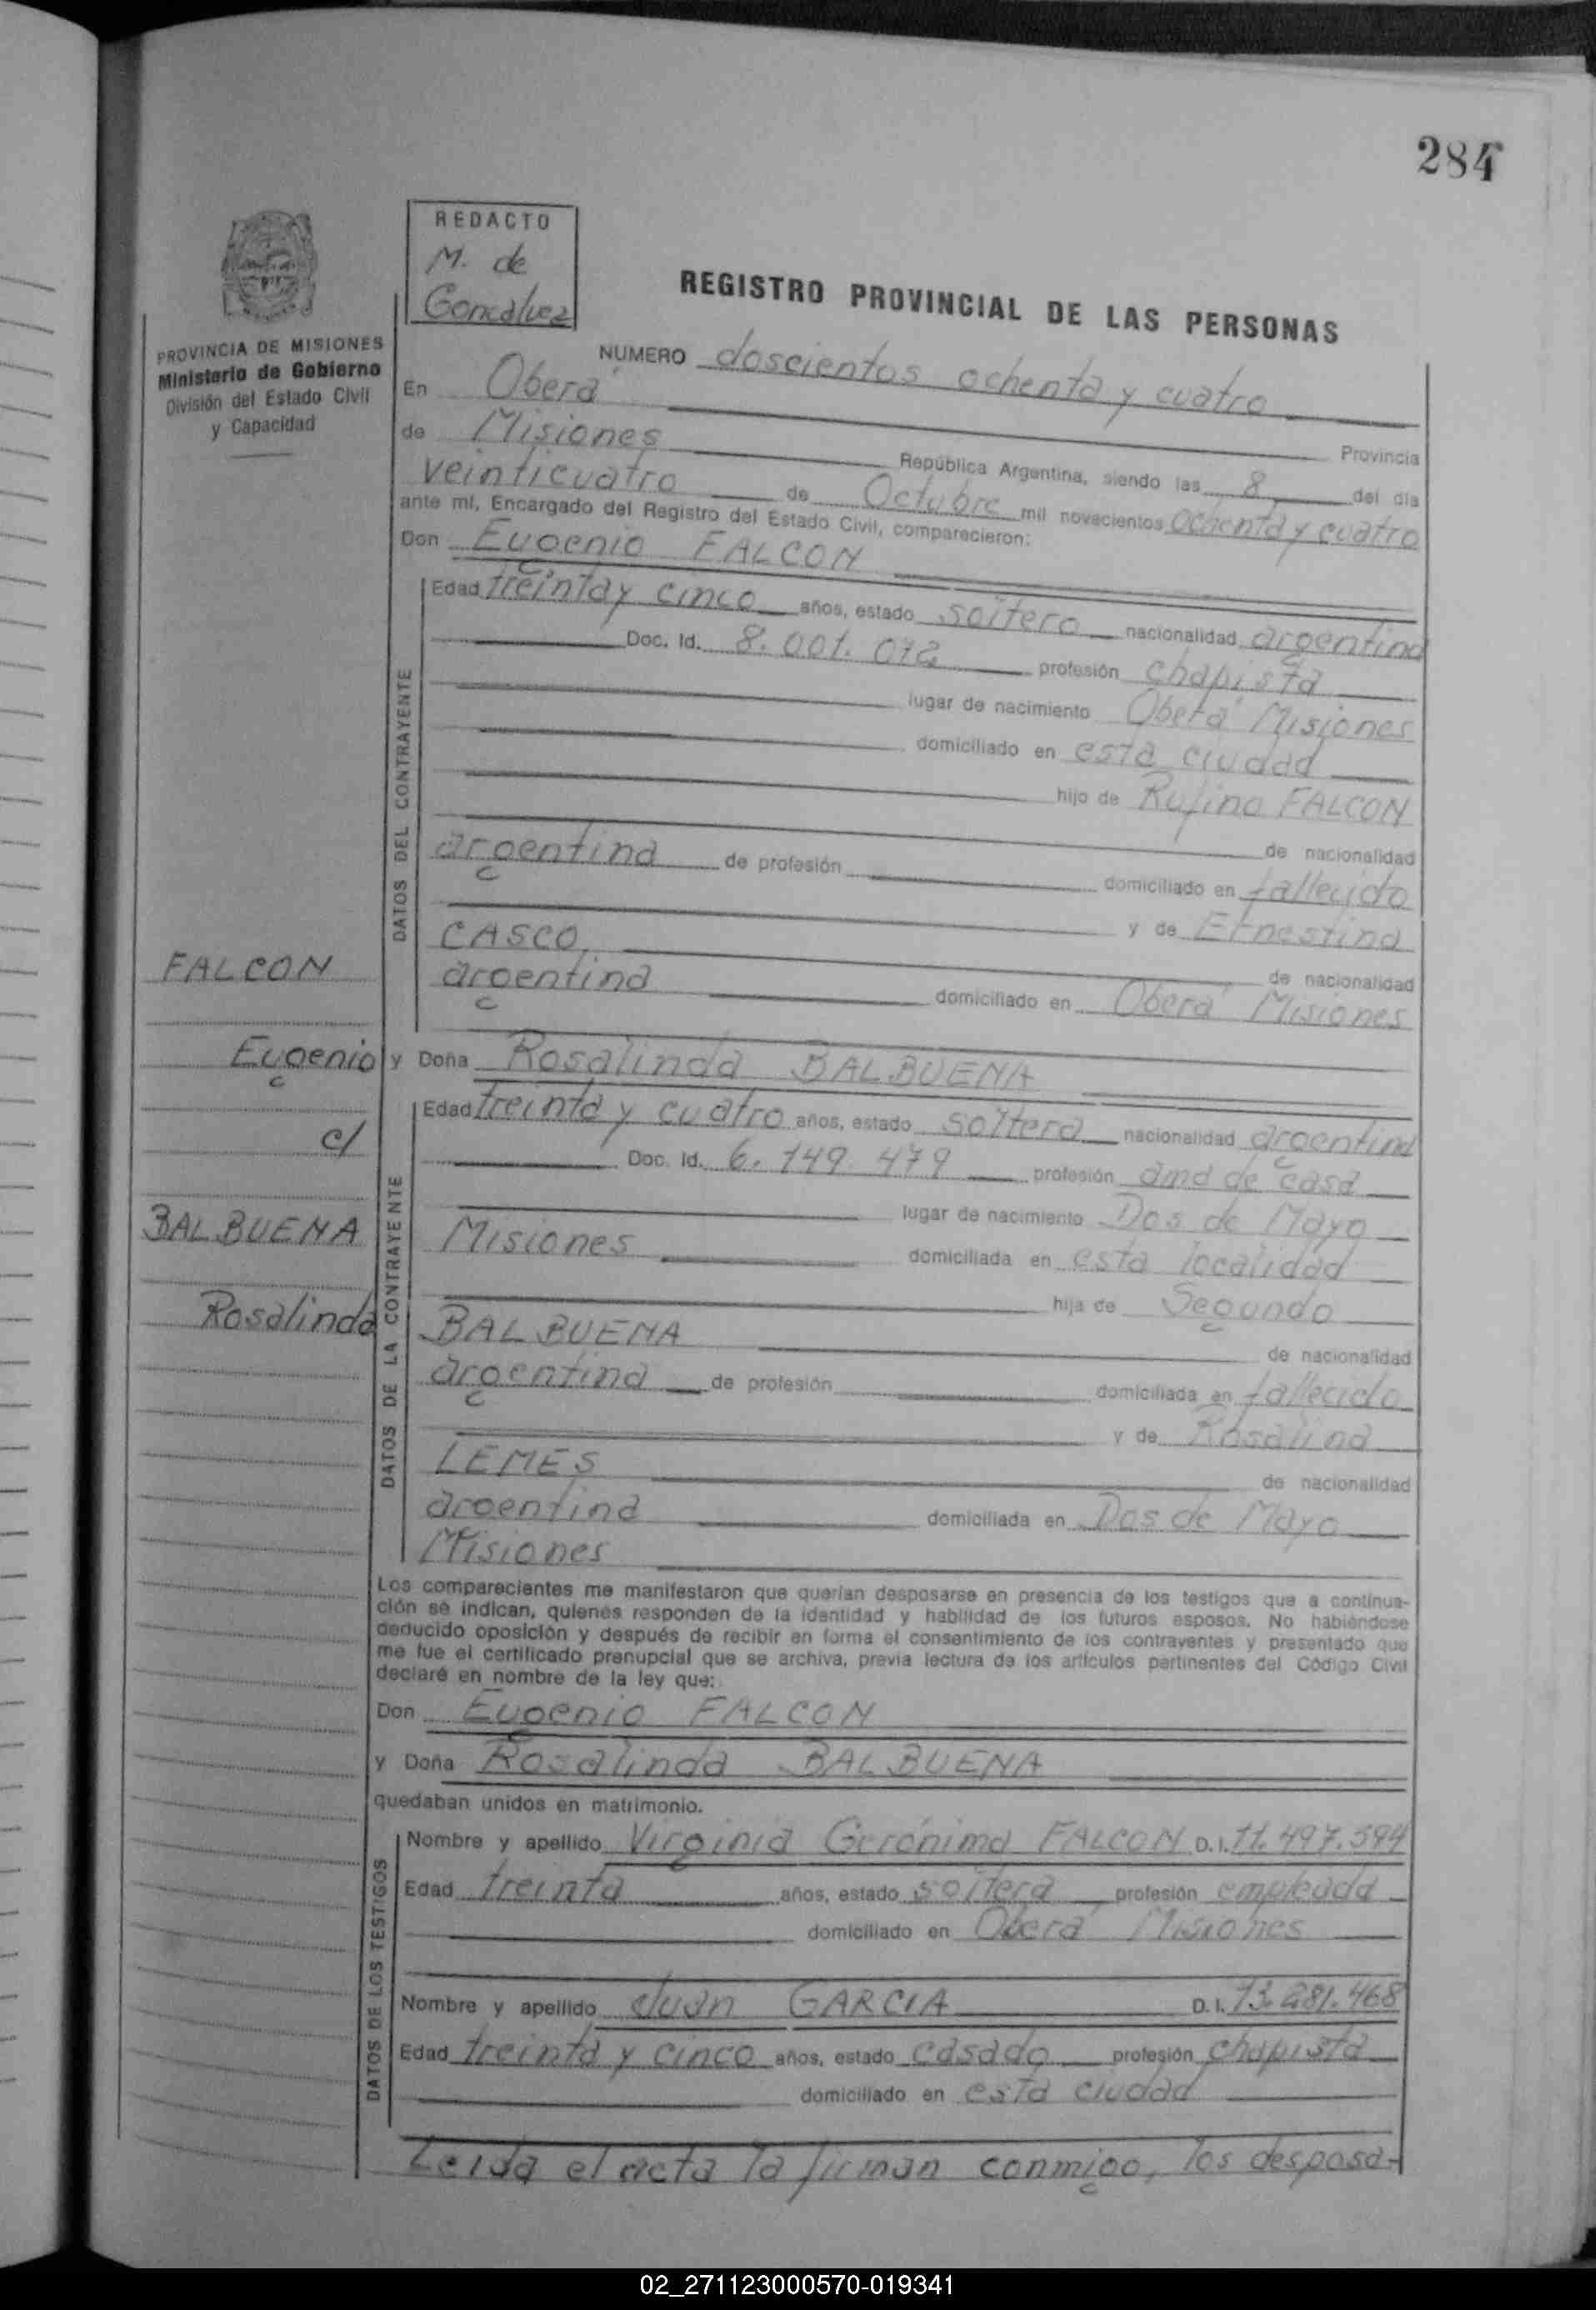 284
REDACTO
M. de
Goncalvez
REGISTRO PROVINCIAL DE LAS PERSONAS
PROVINCIA DE MISIONES
Ministerio de Gobierno
División del Estado Civil
y Capacidad
NUMERO doscientos ochenta y cuatro
En Oberá Provincia
de Misiones República Argentina, siendo las 8 del día
veinticuatro de Octubre mil novecientos ochenta y cuatro
ante mí, Encargado del Registro del Estado Civil, comparecieron:
Don Eugenio FALCON
DATOS DEL CONTRAYENTE
Edad treinta y cinco años, estado soltero nacionalidad argentina
Doc. Id. 8.001.072 profesión chapista
lugar de nacimiento Oberá Misiones
domiciliado en esta ciudad
hijo de Rufino FALCON
de nacionalidad
argentina de profesión domiciliado en fallecido
y de Ernestina
CASCO, de nacionalidad
argentina domiciliado en Oberá Misiones
FALCON
Eugenio
c/
BALBUENA
Rosalinda
y Doña Rosalinda BALBUENA
DATOS DE LA CONTRAYENTE
Edad treinta y cuatro años, estado soltera nacionalidad argentina
Doc. Id. 6.149.479 profesión ama de casa
lugar de nacimiento Dos de Mayo
Misiones domiciliada en esta localidad
hija de Segundo
BALBUENA de nacionalidad
argentina de profesión domiciliada en fallecido
y de Rosalina
LEMES de nacionalidad
argentina domiciliada en Dos de Mayo
Misiones
Los comparecientes me manifestaron que querían desposarse en presencia de los testigos que a continua-
ción se indican, quienes responden de la identidad y habilidad de los futuros esposos. No habiéndose
deducido oposición y después de recibir en forma el consentimiento de los contrayentes y presentado que
me fue el certificado prenupcial que se archiva, previa lectura de los artículos pertinentes del Código Civil
declaré en nombre de la ley que:
Don Eugenio FALCON
y Doña Rosalinda BALBUENA
quedaban unidos en matrimonio.
DATOS DE LOS TESTIGOS
Nombre y apellido Virginia Gerónima FALCON D.I. 11.497.594
Edad treinta años, estado soltera profesión empleada
domiciliado en Oberá Misiones
Nombre y apellido Juan GARCIA D.I. 13.281.468
Edad treinta y cinco años, estado casado profesión chapista
domiciliado en esta ciudad
Leida el acta la firman conmigo, los desposa-
02_271123000570-019341